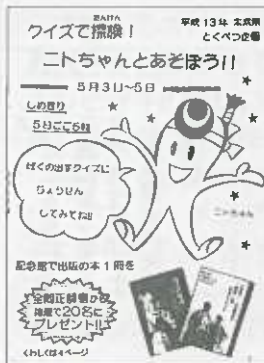 平成13年 太宰府
とくべつ企画
クイズで探険！
たんけん
ニトちゃんとあそぼう!!
5月3日〜5日
しめきり
5日ごご5時
ぼくの出すクイズに
ちょうせん
してみてね!!
ニトちゃん
記念館で出版の本1冊を
全問正解者から
抽選で20名に
プレゼント!!
くわしくは4ページ